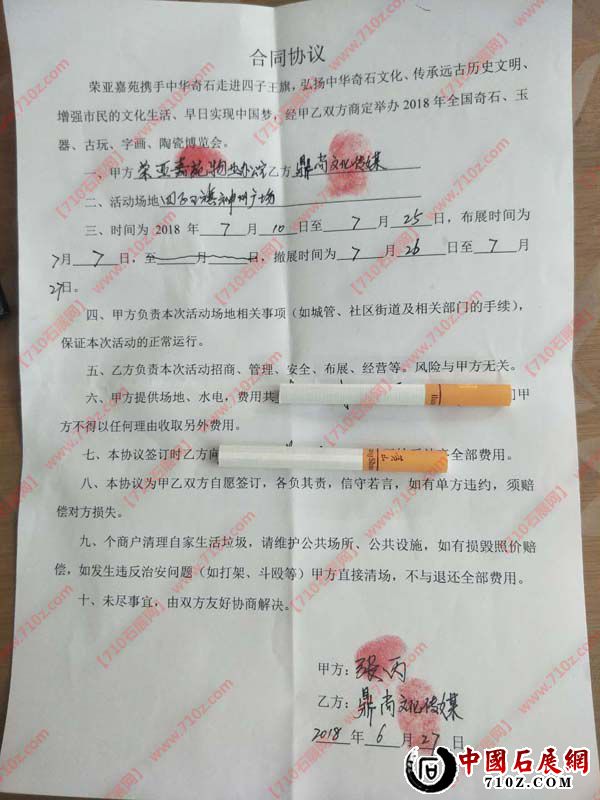 合同协议
荣亚嘉苑携手中华奇石走进四子王旗，弘扬中华奇石文化、传承远古历史文明、
增强市民的文化生活、早日实现中国梦，经甲乙双方商定举办 2018 年全国奇石、玉
器、古玩、字画、陶瓷博览会。
一、甲方荣亚嘉苑物业办公室乙方鼎尚文化传媒
二、活动场地四子王旗神州广场
三、时间为 2018 年 7 月 10 日至 7 月 25 日，布展时间为
7月 7 日，至 月 日，撤展时间为 7 月 26 日至 7 月
27日。
四、甲方负责本次活动场地相关事项（如城管、社区街道及相关部门的手续），
保证本次活动的正常运行。
五、乙方负责本次活动招商、管理、安全、布展、经营等。风险与甲方无关。
六、甲方提供场地、水电，费用共 甲
方不得以任何理由收取另外费用。
七、本协议签订时乙方 全部费用。
八、本协议为甲乙双方自愿签订，各负其责，信守若言，如有单方违约，须赔
偿对方损失。
九、个商户清理自家生活垃圾，请维护公共场所、公共设施，如有损毁照价赔
偿，如发生违反治安问题（如打架、斗殴等）甲方直接清场，不与退还全部费用。
十、未尽事宜，由双方友好协商解决。
甲方：张丙
乙方：鼎尚文化传媒
2018 年 6 月 27 日
【710石展网】www.710z.com
中國石展網
710Z.COM